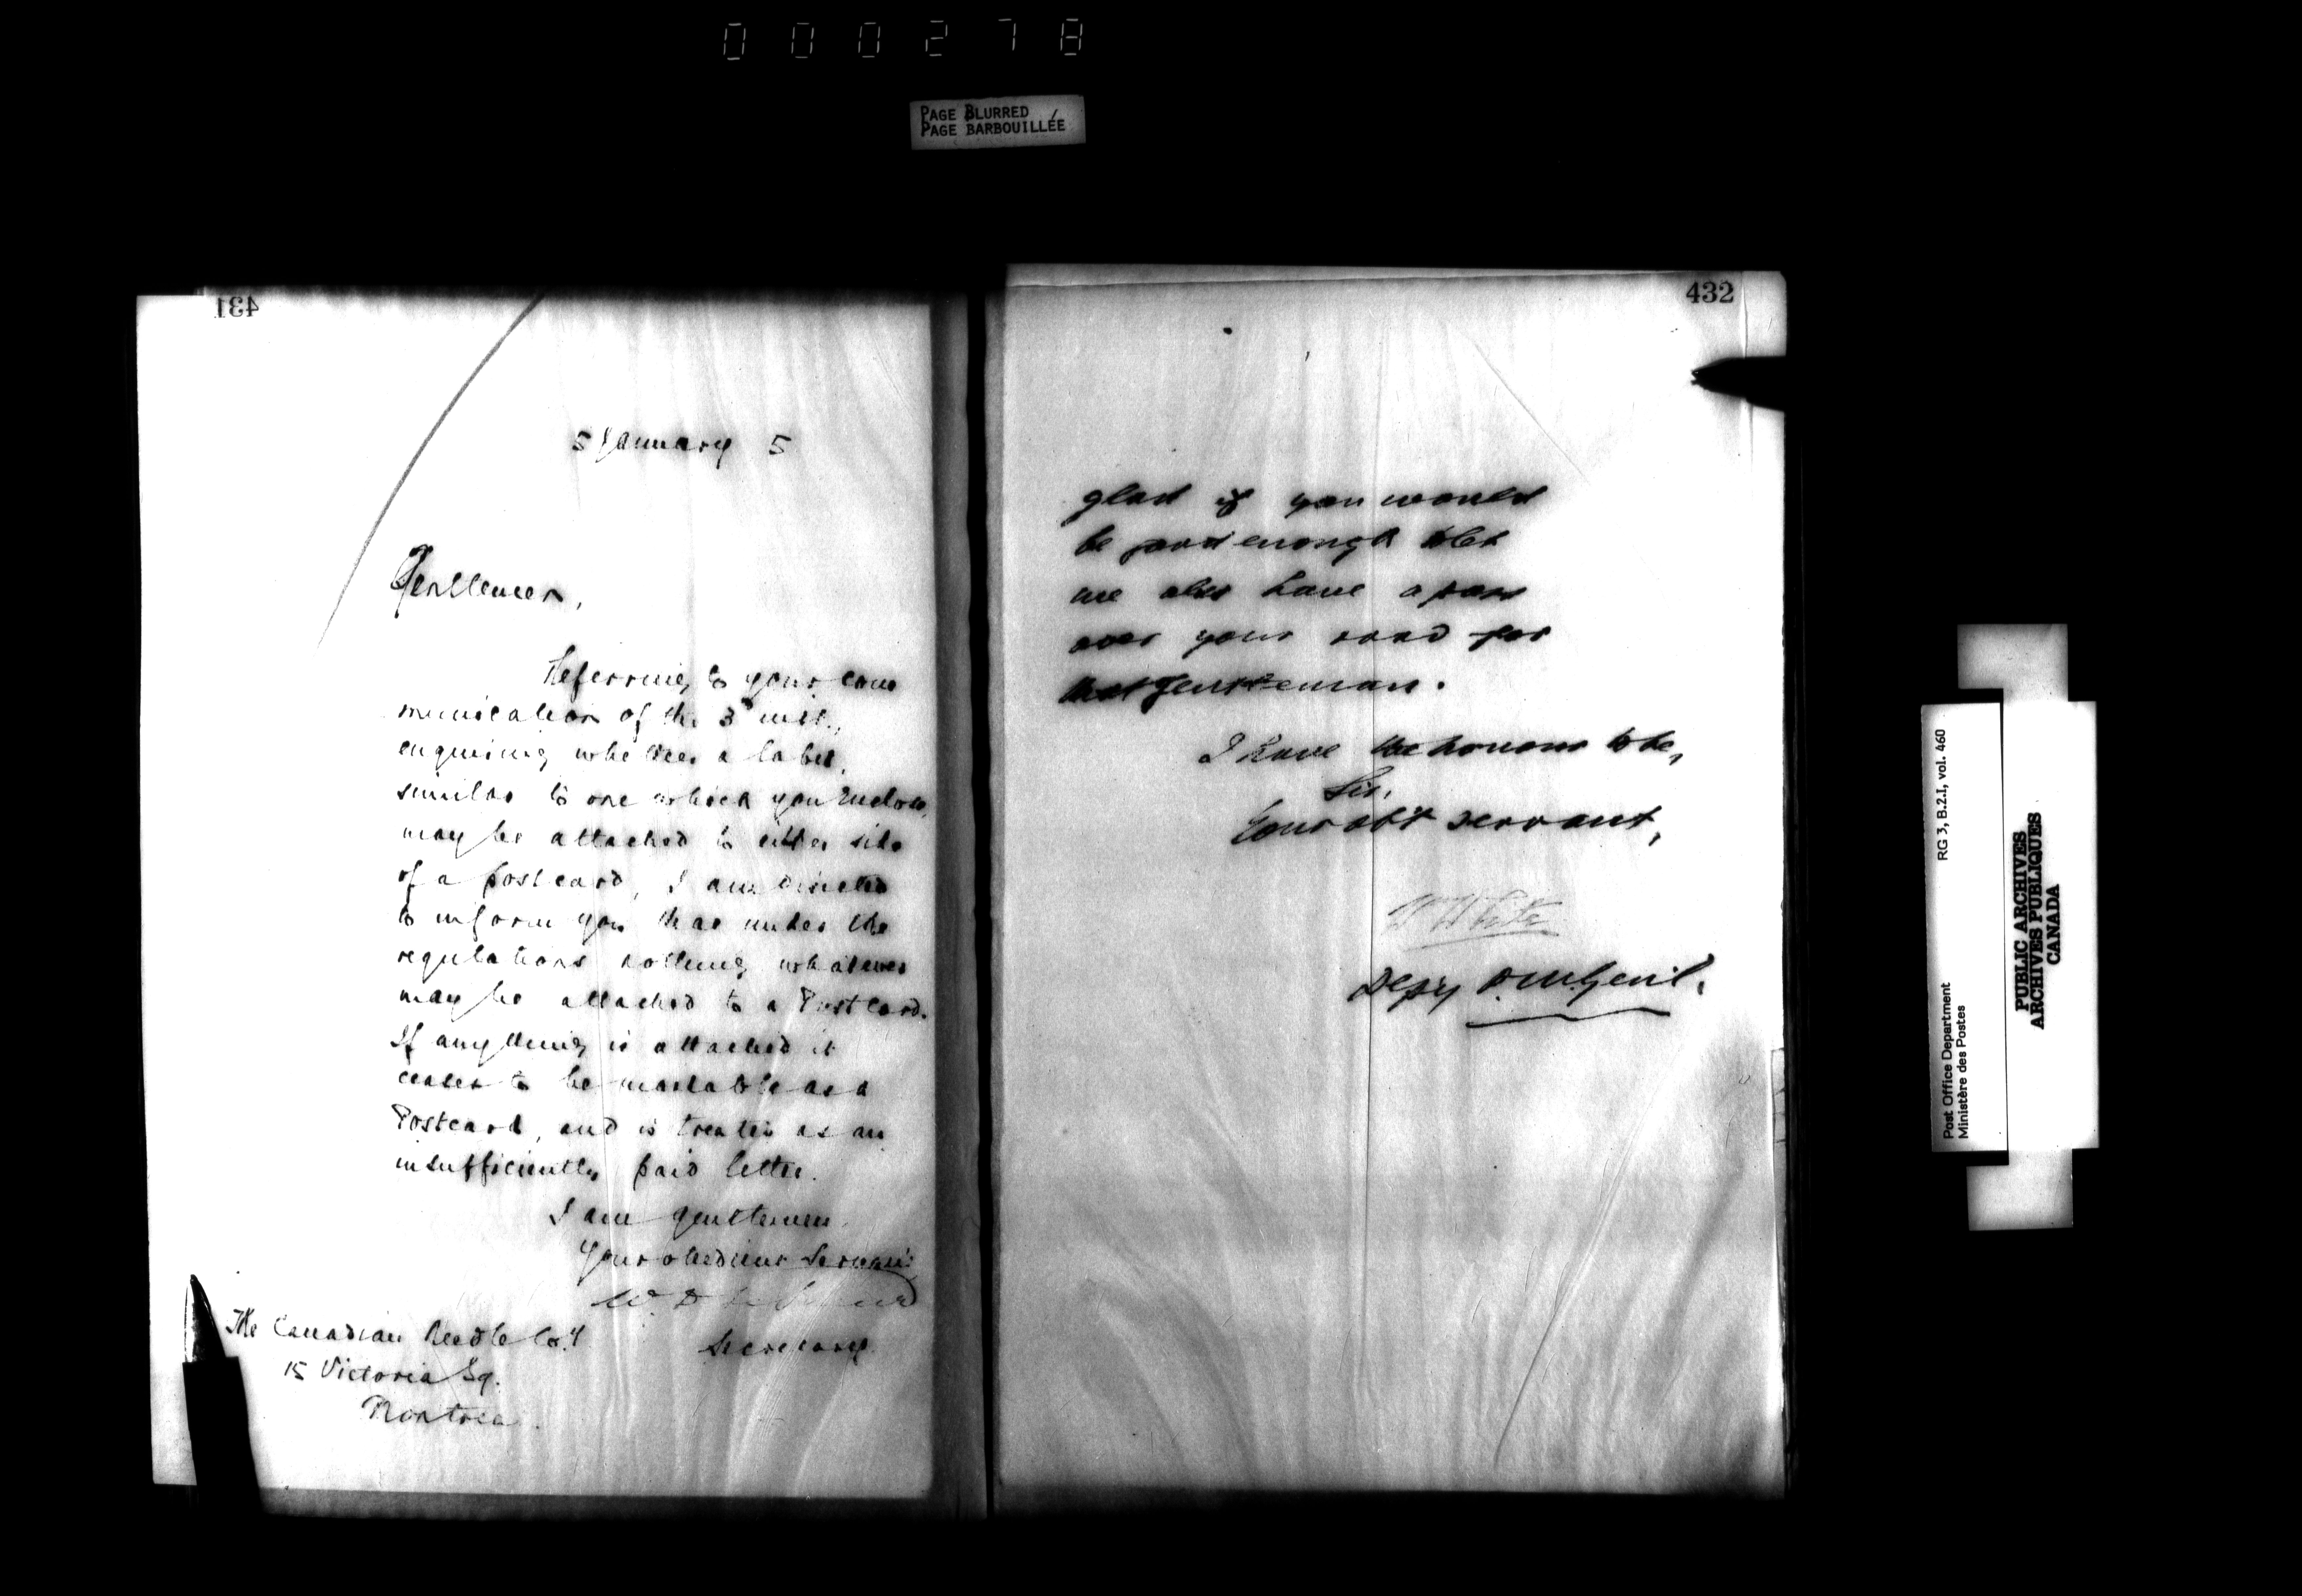 000278
PAGE BLURRED
PAGE BARBOUILLÉE
431
5 January 5
Gentlemen,
Referring to your com
munication of the 3d inst.,
enquiring whether a label,
similar to one which you enclose,
may be attached to either side
of a postcard, I am directed
to inform you that under the
regulations nothing whatever
may be attached to a Postcard.
If anything is attached it
ceases to be mailable as a
Postcard, and is treated as an
insufficiently paid letter.
I am gentlemen
Your obedient Servant
W. D.
Secretary
The Canadian Needle Coy
15 Victoria Sq.
Montreal
432
glad if you would
be good enough to let
me also have a pass
over your road for
that gentleman.
I have the honour to be,
Sir,
Your obt servant,
Wm White
Depy P.M. Genl.
Post Office Department
Ministère des Postes
RG 3, B.2.I, vol. 460
PUBLIC ARCHIVES
ARCHIVES PUBLIQUES
CANADA